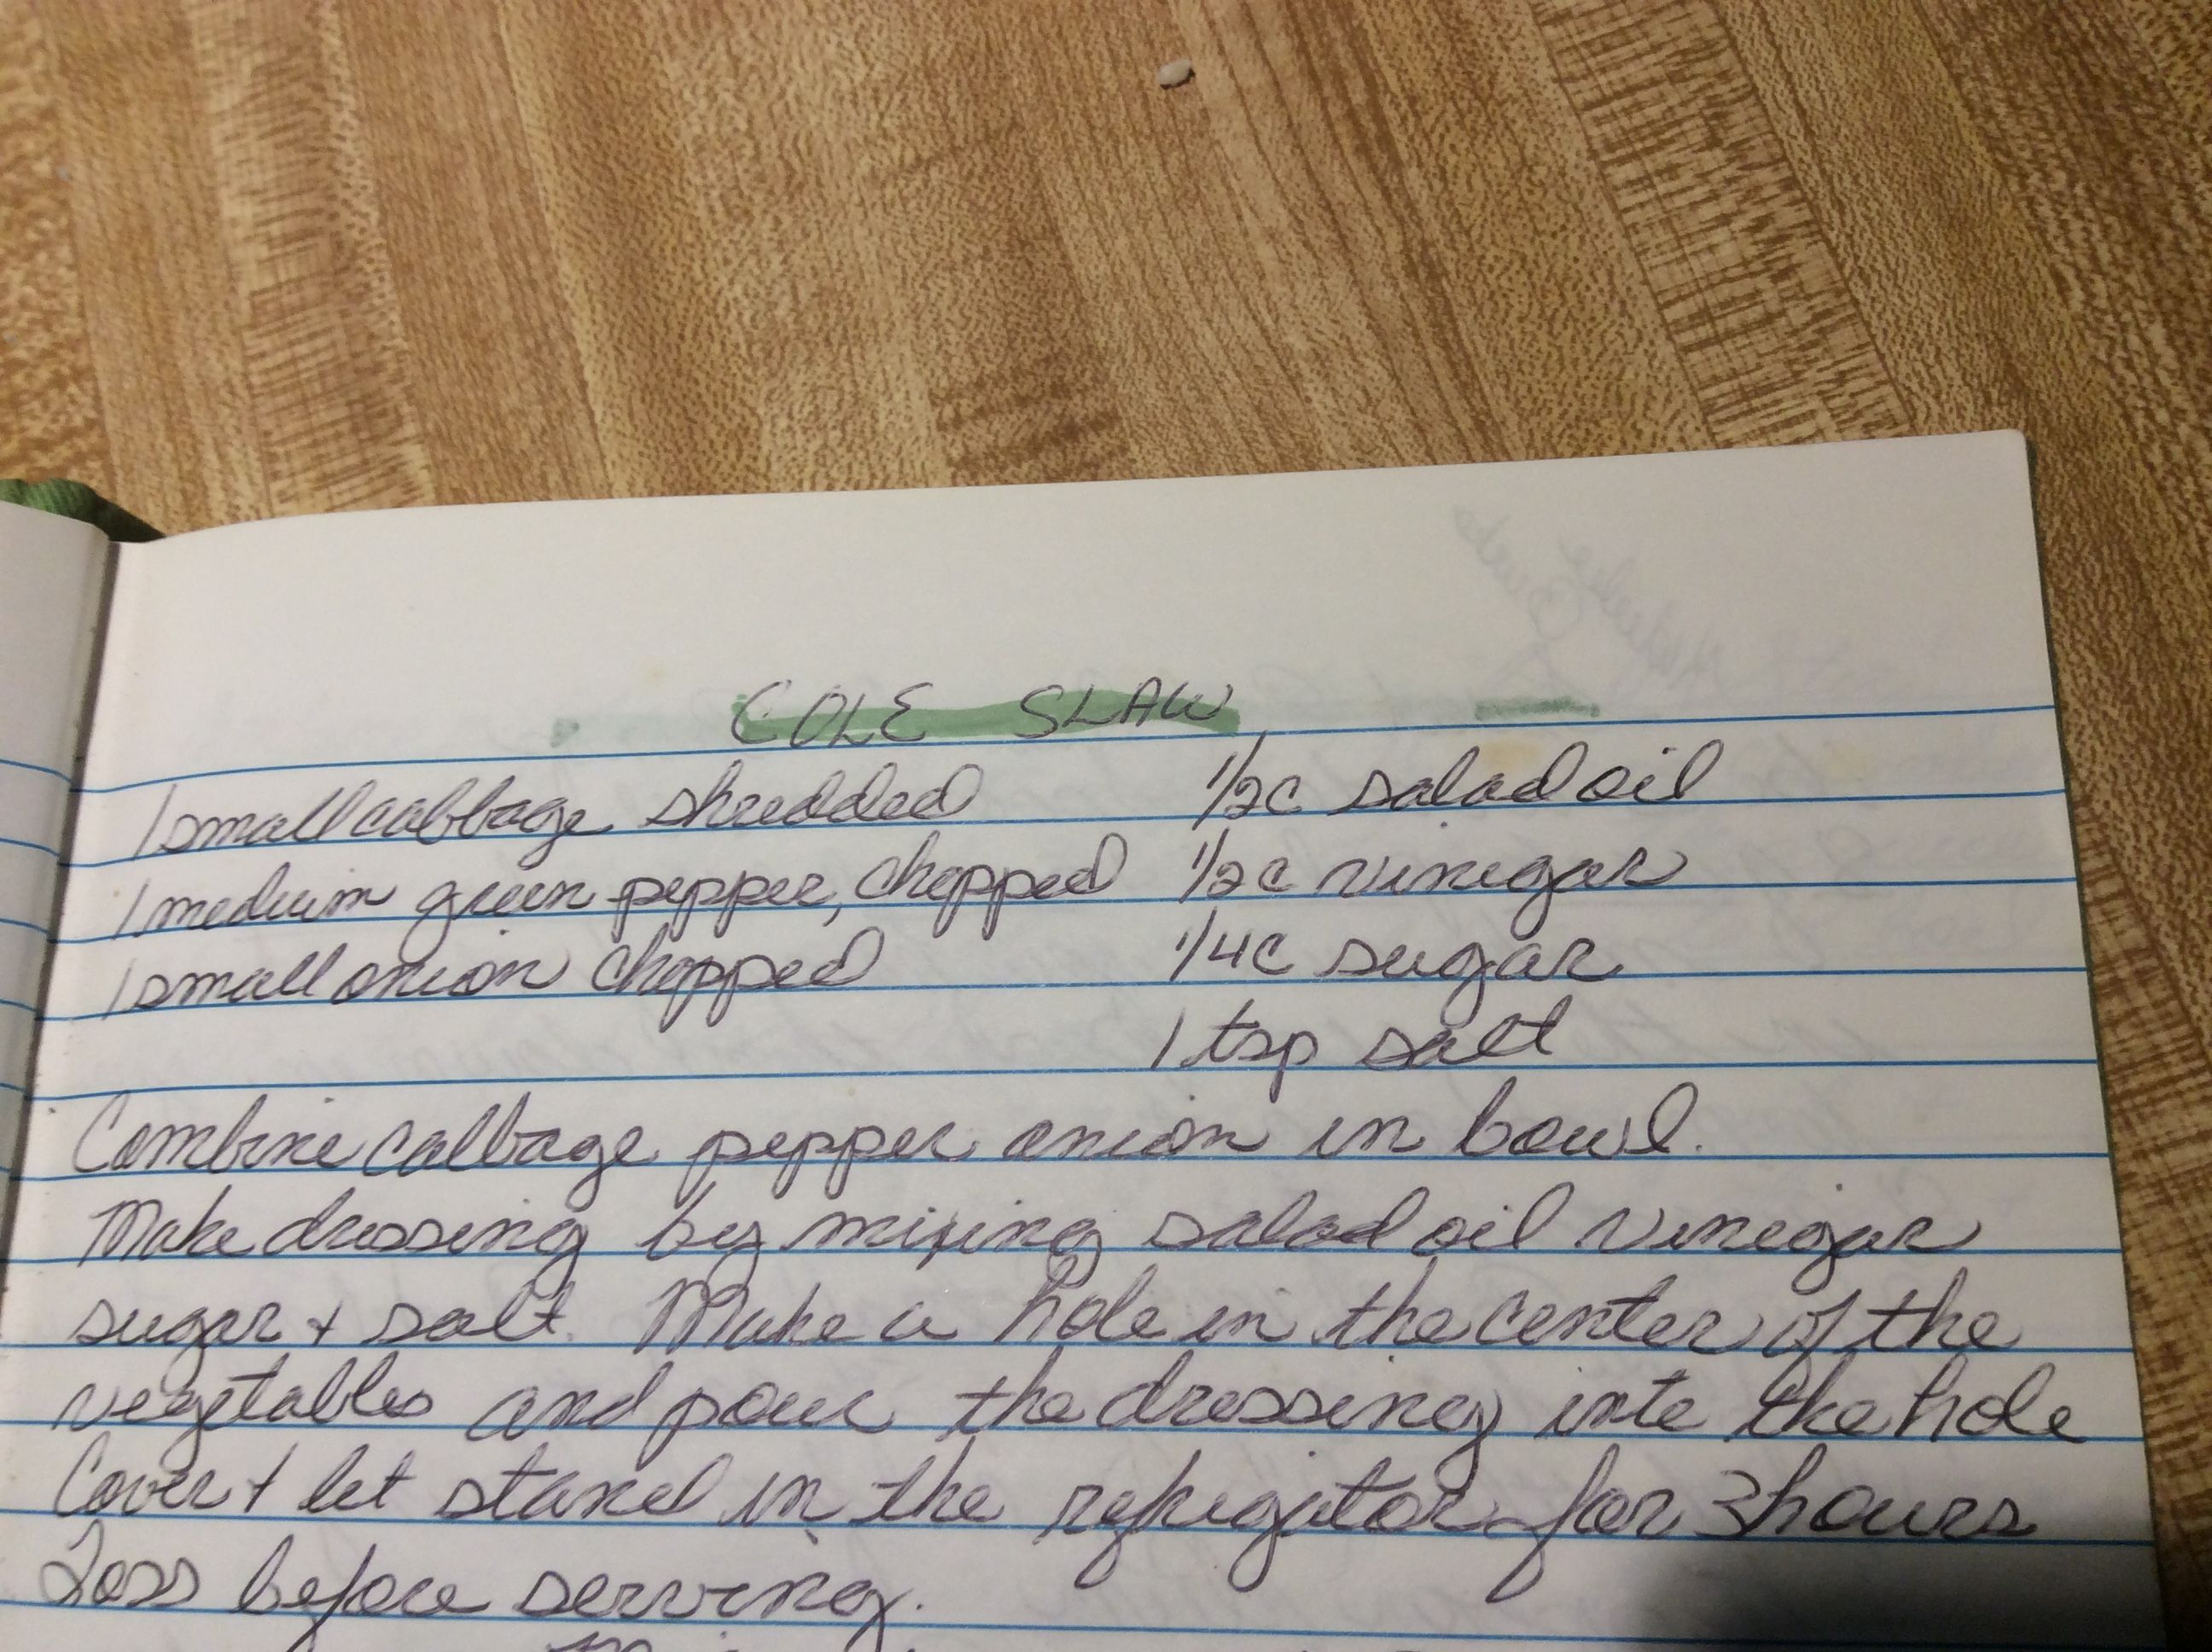 COLE SLAW
1 small cabbage shredded 1/2c salad oil
1 medium green pepper, chopped 1/2c vinegar
1 small onion chopped 1/4c sugar
1 tsp salt
Combine cabbage pepper onion in bowl.
Make dressing by mixing salad oil vinegar
sugar + salt. Make a hole in the center of the
vegetables and pour the dressing into the hole
Cover + let stand in the refrigator for 3 hours
Toss before serving.